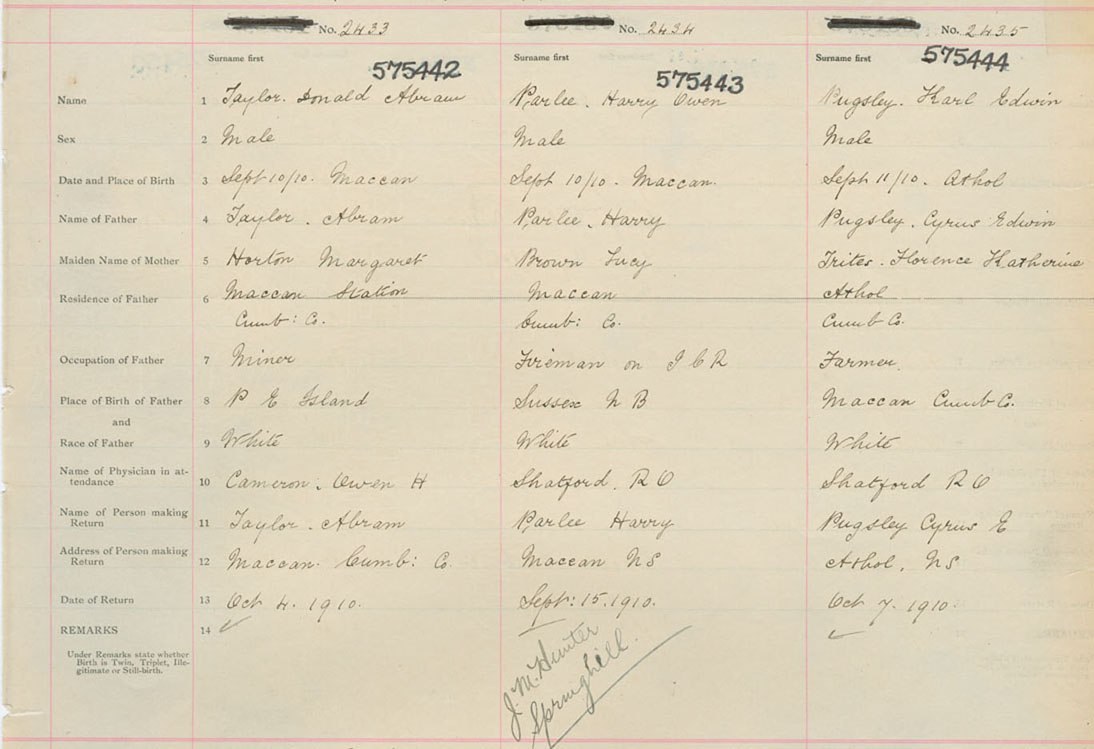 No. 2433 No. 2434 No. 2435
Surname first Surname first Surname first
575442 575443 575444
Name 1 Taylor. Donald Abram Parlee. Harry Owen Pugsley. Karl Edwin
Sex 2 Male Male Male
Date and Place of Birth 3 Sept 10/10. Maccan Sept 10/10. Maccan. Sept 11/10. Athol
Name of Father 4 Taylor. Abram Parlee. Harry Pugsley. Cyrus Edwin
Maiden Name of Mother 5 Horton Margaret Brown Lucy Trites. Florence Katherine
Residence of Father 6 Maccan Station Maccan Athol
Cumb: Co. Cumb: Co. Cumb Co.
Occupation of Father 7 Miner Fireman on I C R Farmer.
Place of Birth of Father 8 P E Island Sussex N B Maccan Cumb Co.
and
Race of Father 9 White White White
Name of Physician in at-
tendance 10 Cameron. Owen H Shatford. R O Shatford R O
Name of Person making
Return 11 Taylor. Abram Parlee Harry Pugsley Cyrus E
Address of Person making
Return 12 Maccan. Cumb: Co. Maccan NS Athol. NS
Date of Return 13 Oct 4. 1910. Sept: 15. 1910. Oct 7. 1910.
REMARKS 14
Under Remarks state whether
Birth is Twin, Triplet, Ille-
gitimate or Still-birth.
J. M. Hunter
Springhill.